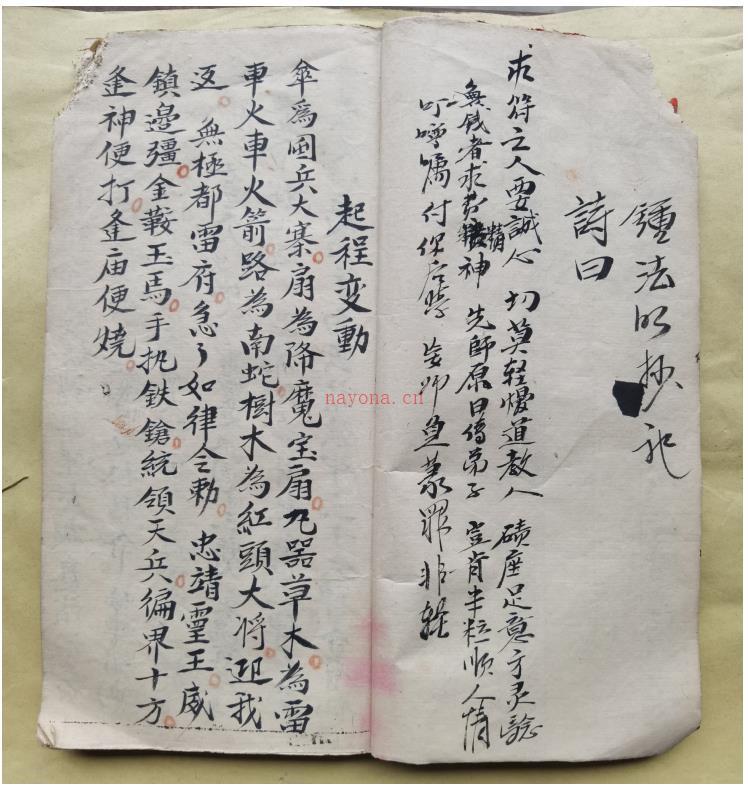 鍾法明抄記
詩曰
求符之人要誠心 切莫轻慢道教人 碩座足意方灵驗
無钱者求費精神 先師原日傳弟子 豈肯半粒順人情
叮嚀嘱付
起程变動
傘爲國兵大寨扇為降魔宝扇九器草木為雷
車火車火箭路為南蛇樹木為紅頭大將迎我
返 無極都雷府急了如律令勅 忠靖靈王威
鎮邊疆金鞍玉馬手执鉄鎗統領天兵徧界十方
逢神便打逢庙便燒
nayona.cn